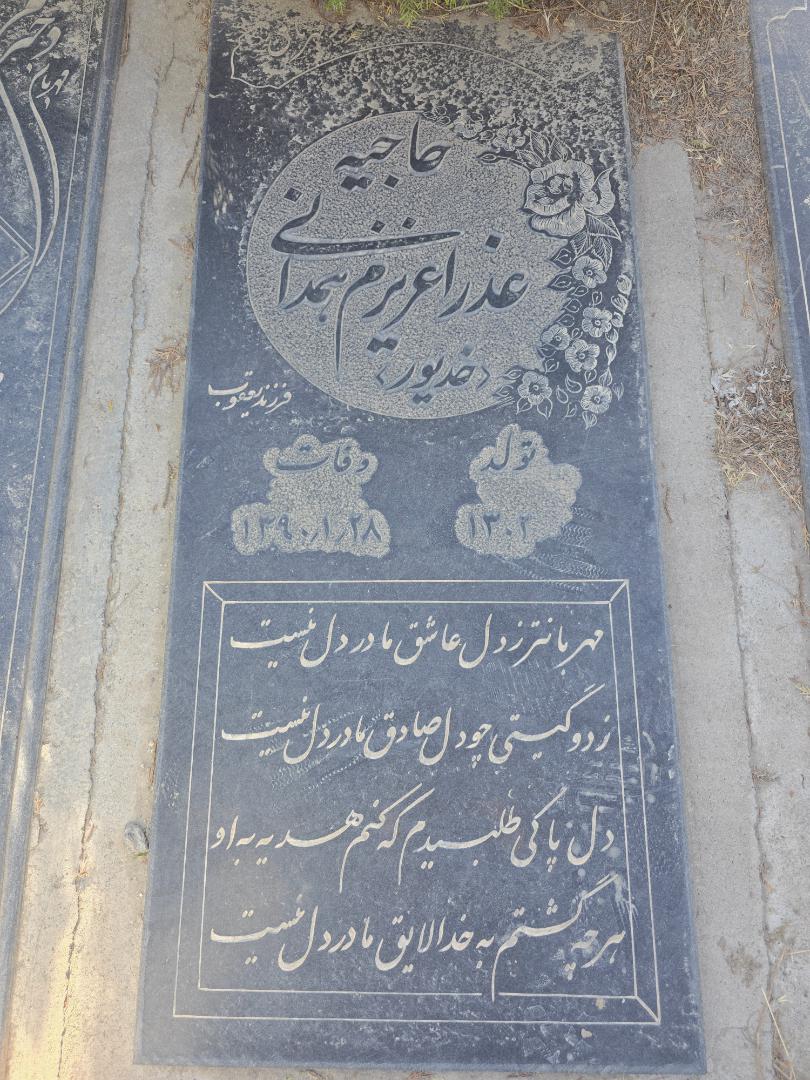 حاجیه
عذرا عزیزم همدانی
(خدیور)
فرزند یعقوب
تولد
۱۳۰۲
وفات
۱۳۹۰/۱/۲۸
مهربانتر ز دل عاشق مادر دل نیست
ز دو گیتی چو دل صادق مادر دل نیست
دل پاکی طلبیدم که کنم هدیه به او
هر چه گشتم به خدا لایق مادر دل نیست